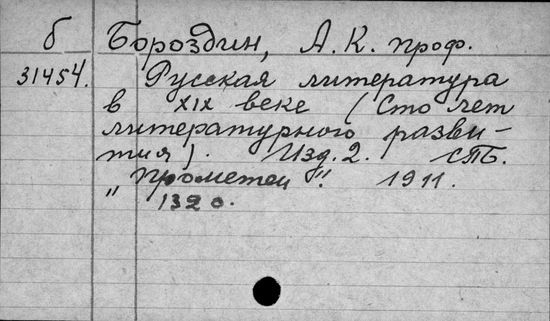 б Бороздин, А. К. проф.
31454. Русская литература
в XIX веке (Сто лет
литературного разви-
тия). Изд. 2. СПБ.
„Прометей". 1911.
132 с.